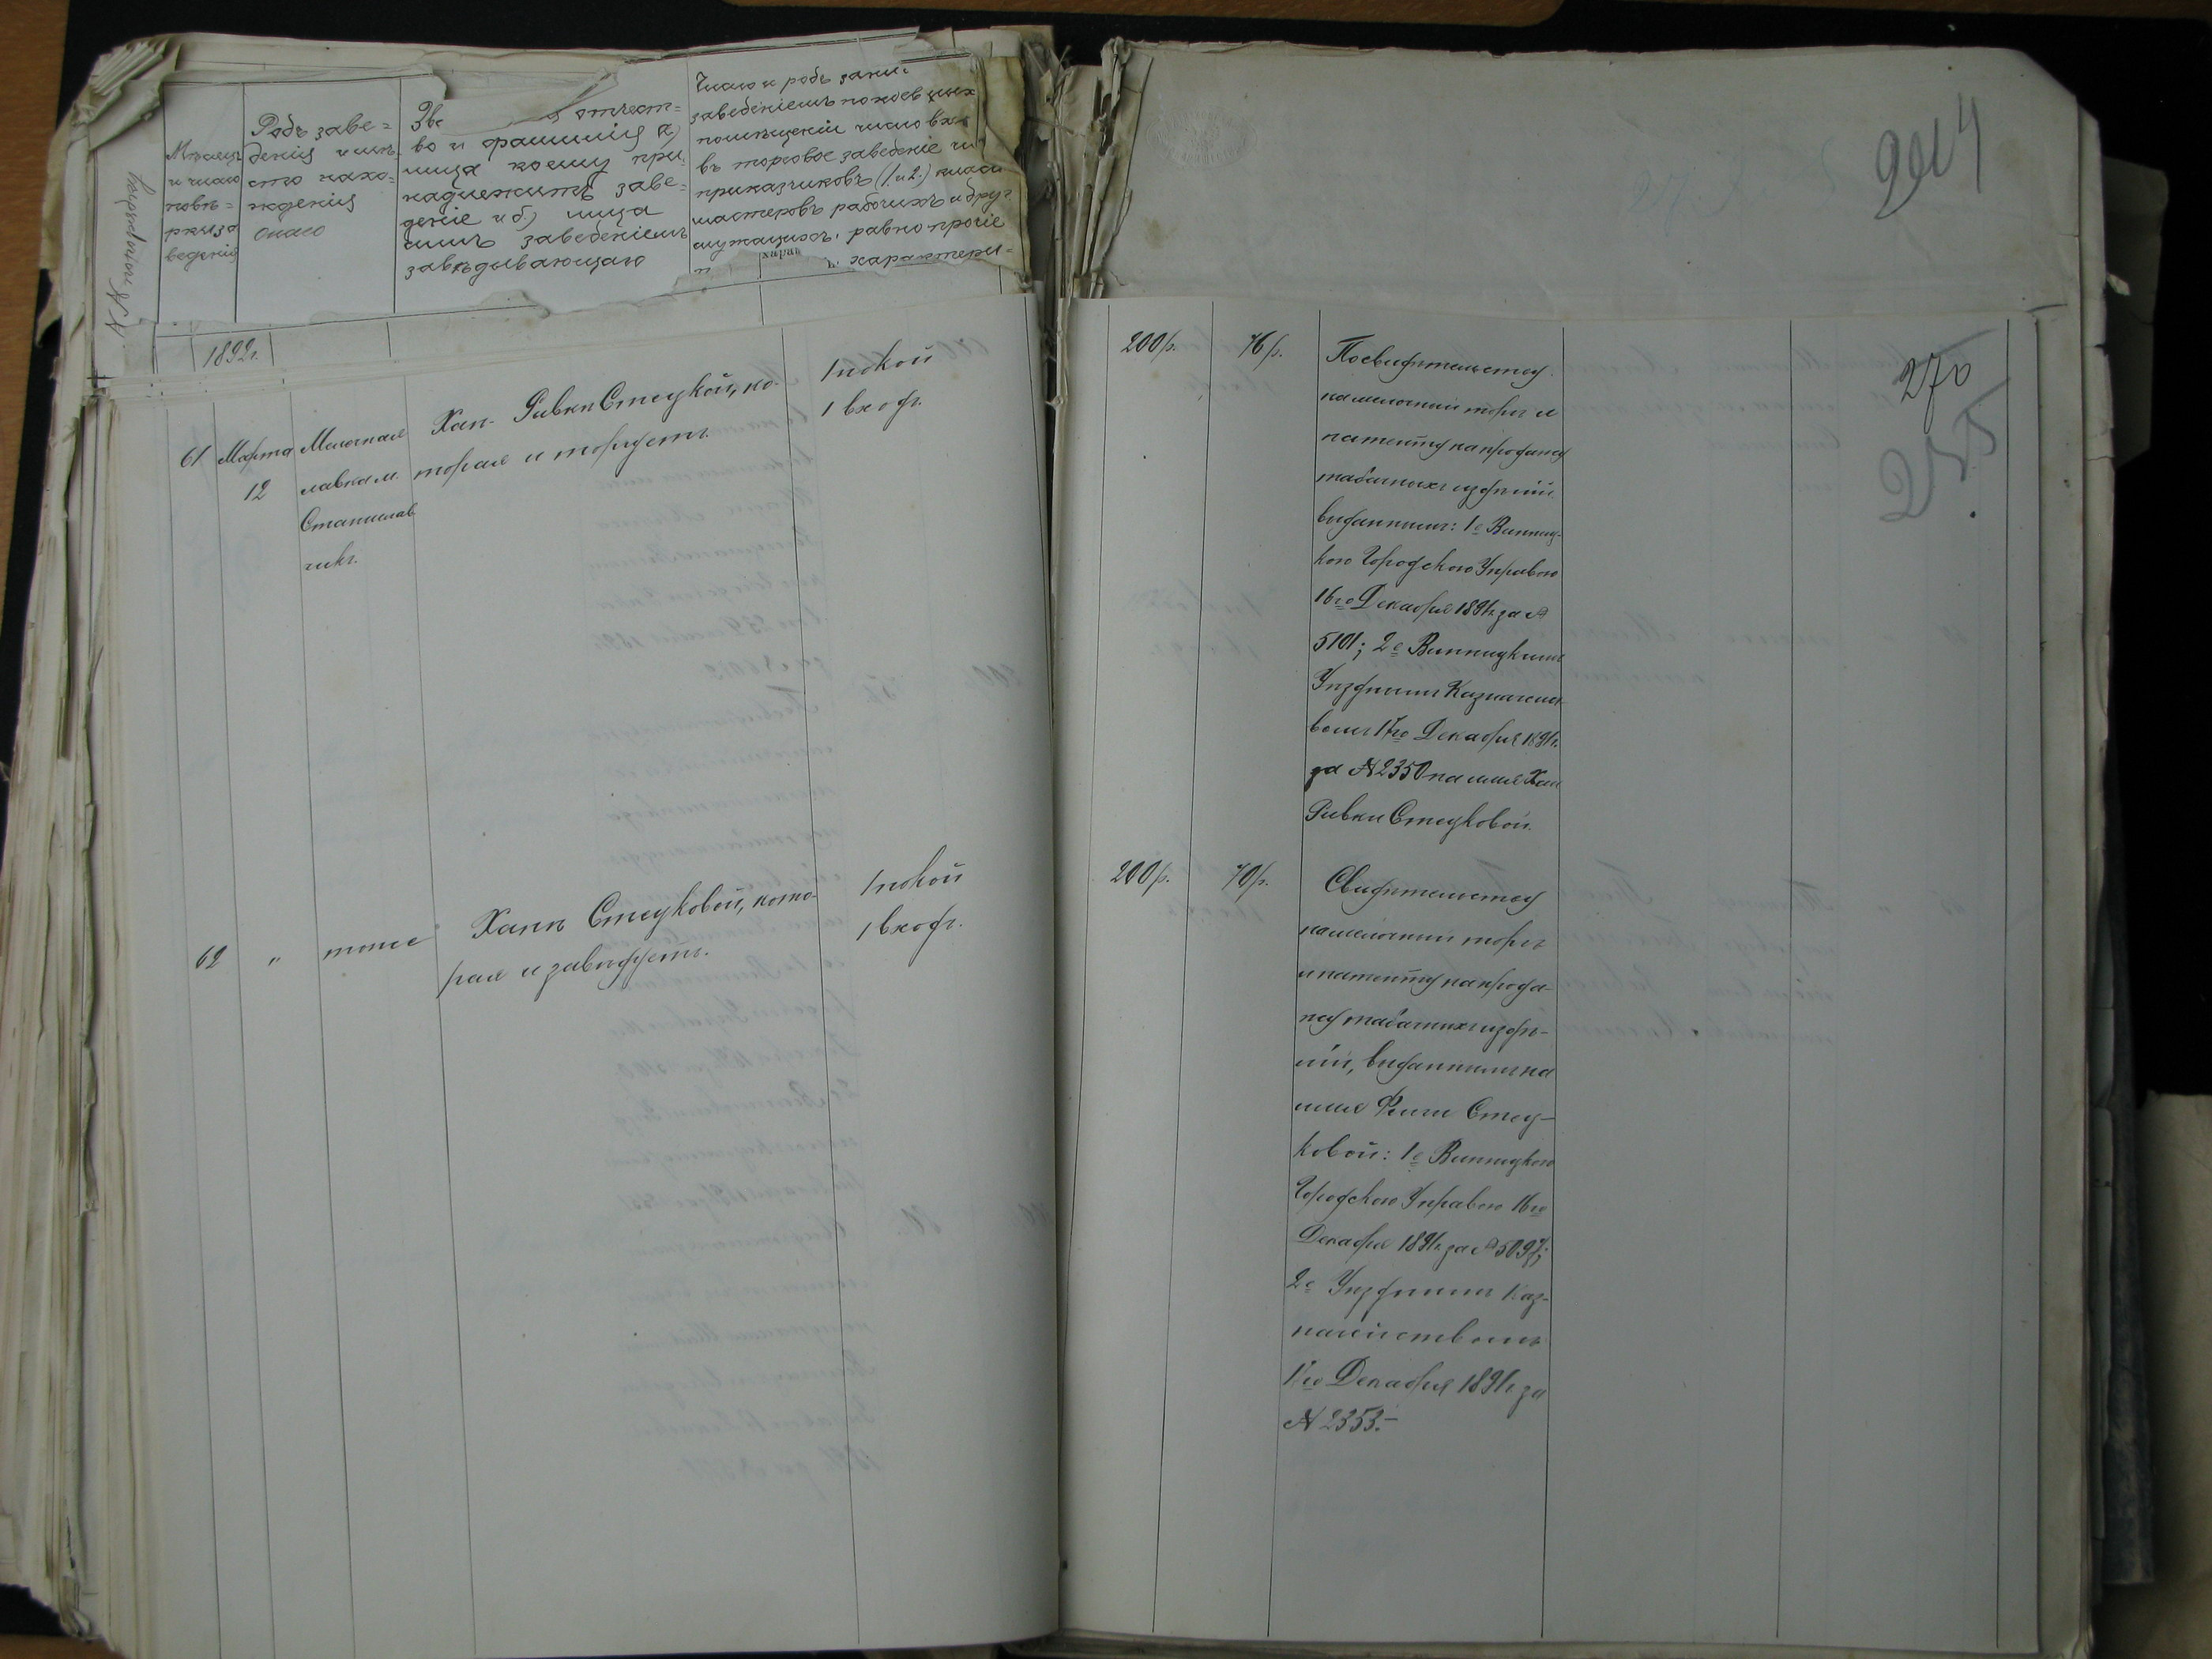 № по порядку
Мѣсяцъ
и число
повѣ=
рки за
веденія
Родъ заве=
денія и мѣ=
сто нахо=
жденія
онаго
Зва отчест=
во и фамилія а)
лица коему при=
надлежитъ заве=
деніе и б) лица
симъ заведеніемъ
завѣдывающаго
Число и родъ зани
заведеніемъ покоевъ
помѣщеніи число вхо
въ торговое заведеніе чи
приказчиковъ (1. и 2.) класс
мастеровъ рабочихъ и друг
служащихъ, равно прочіе
характери=
1892г.
61
Марта
12
Мелочная
лавка м.
Станислав
чикъ.
Хан-Ривки Стецкой, ко-
торая и торгуетъ.
1 покой
1 входъ.
200р.
76р.
По свидѣтельству
на мелочный торгъ и
патенту на продажу
табачныхъ издѣлій
выданнымъ: 1е Винниц-
кою Городскою Управою
16го Декабря 1891г за №
5101; 2е Винницкимъ
Уѣзднымъ Казначейст
вомъ 17го Декабря 1891г.
за № 2350 на имя Хаи
Ривки Стецковой.
62
"
тоже
Ханѣ Стецковой, кото-
рая и завѣдуетъ.
1 покой
1 входъ.
200р.
70р.
Свидѣтельству
на мелочный торгъ
и патенту на прода-
жу табачныхъ издѣ-
лій, выданнымъ на
имя Стец-
ковой: 1е Винницкою
Городскою Управою 16го
Декабря 1891г за № 5097;
2е Уѣзднымъ Каз-
начействомъ
17го Декабря 1891г за
№ 2353.-
270